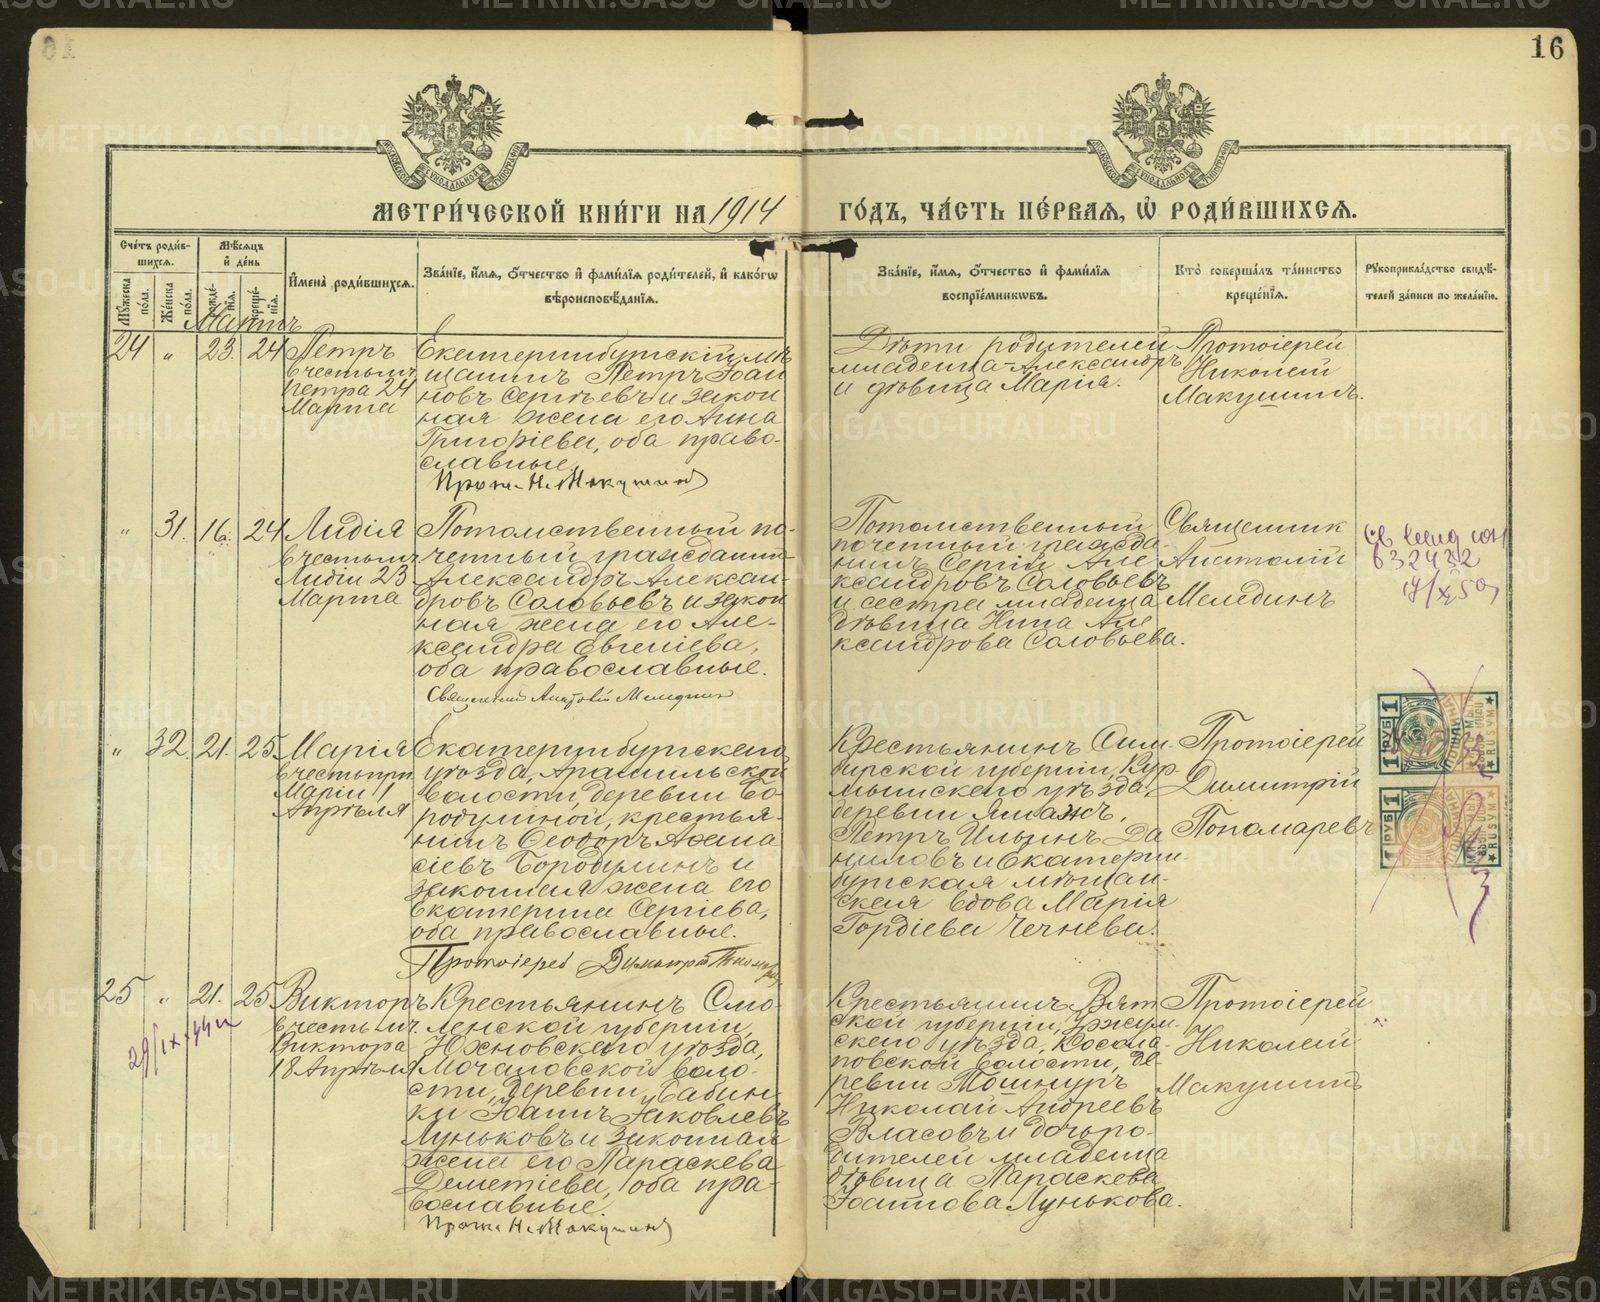 16
МЕТРИ́ЧЕСКОЙ КНИ́ГИ НА 1914
ГО́ДЪ, ЧА́СТЬ ПЕ́РВАЯ, Ѡ҆ РОДИ́ВШИХСѦ.
Сче́тъ роди́в-
шихсѧ.
Мѣ́сѧцъ
и҆ де́нь
Мꙋ́жеска по́ла.
Же́нска по́ла.
рожде́-
нїѧ.
креще́-
нїѧ.
И҆мена̀ роди́вшихсѧ.
Зва́нїе, и҆́мѧ, ѻ҆́тчество и҆ фами́лїѧ роди́телей, и҆ како́гѡ
вѣроисповѣ́данїѧ.
Зва́нїе, и҆́мѧ, ѻ҆́тчество и҆ фами́лїѧ
воспрїе́мникѡвъ.
Кто̀ соверша́лъ та́инство
креще́нїѧ.
Рꙋкоприкла́дство свидѣ́-
телей за́писи по жела́нїю.
Мартъ
24 " 23. 24
Петръ
в честь мч.
Петра 24
Марта
Екатеринбургскій мѣ
щанинъ Петръ Іоан
новъ Сергѣевъ и закон
ная жена его Анна
Григоріева, оба право-
славные.
Прот. Н. Макушинъ
Дѣти родителей
младенца Александръ
и дѣвица Марія.
Протоіерей
Николай
Макушинъ.
" 31. 16. 24
Лидія
в честь мч.
Лидіи 23
Марта
Потомственный по-
четный гражданинъ
Александръ Алексан-
дровъ Соловьевъ и закон
ная жена его Але-
ксандра Евгеніева,
оба православные.
Священникъ Анатолій Мелединъ
Потомственный
почетный гражда-
нинъ Сергій Але
ксандровъ Соловьевъ
и сестра младенца
дѣвица Нина Але
ксандрова Соловьева.
Священник
Анатолій
Мелединъ
632432
" 32. 21. 25.
Марія
в честь прп.
Маріи 1
Апрѣля
Екатеринбургскаго
уѣзда, Арамильской
волости, деревни Бо-
родулиной, крестья-
нинъ Ѳеодоръ Аѳана
сіевъ Бородулинъ и
законная жена его
Екатерина Сергіева,
оба православные.
Протоіерей Димитрій Пономаревъ
Крестьянинъ Сим-
бирской губерніи, Кур-
мышского уѣзда,
деревни Ямажъ,
Петръ Ильинъ Да
ниловъ и Екатерин
бургская мѣщан-
ская вдова Марія
Гордіева Чечнева.
Протоіерей
Димитрій
Пономаревъ
1 РУБ
1 РУБ
25 " 21. 25
Викторъ
в честь мч.
Виктора
18 Апрѣля
Крестьянинъ Смо-
ленской губерніи,
Юхновского уѣзда,
Мочаловской воло-
сти, деревни Бабин-
ки Іоаннъ Яковлевъ
Луньковъ и законная
жена его Параскева
Деметіева, оба пра-
вославные.
Прот. Н. Макушинъ
Крестьянинъ Вят
ской губерніи, Уржум-
ского уѣзда, Косола-
повской волости, де-
ревни Тошнуръ
Николай Андреевъ
Власовъ и дочь ро-
дителей младенца
дѣвица Параскева
Іоаннова Лунькова.
Протоіерей
Николай
Макушинъ
METRIKI.GASO-URAL.RU